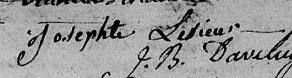 Josephte Lisieux
J. B. Daveluy